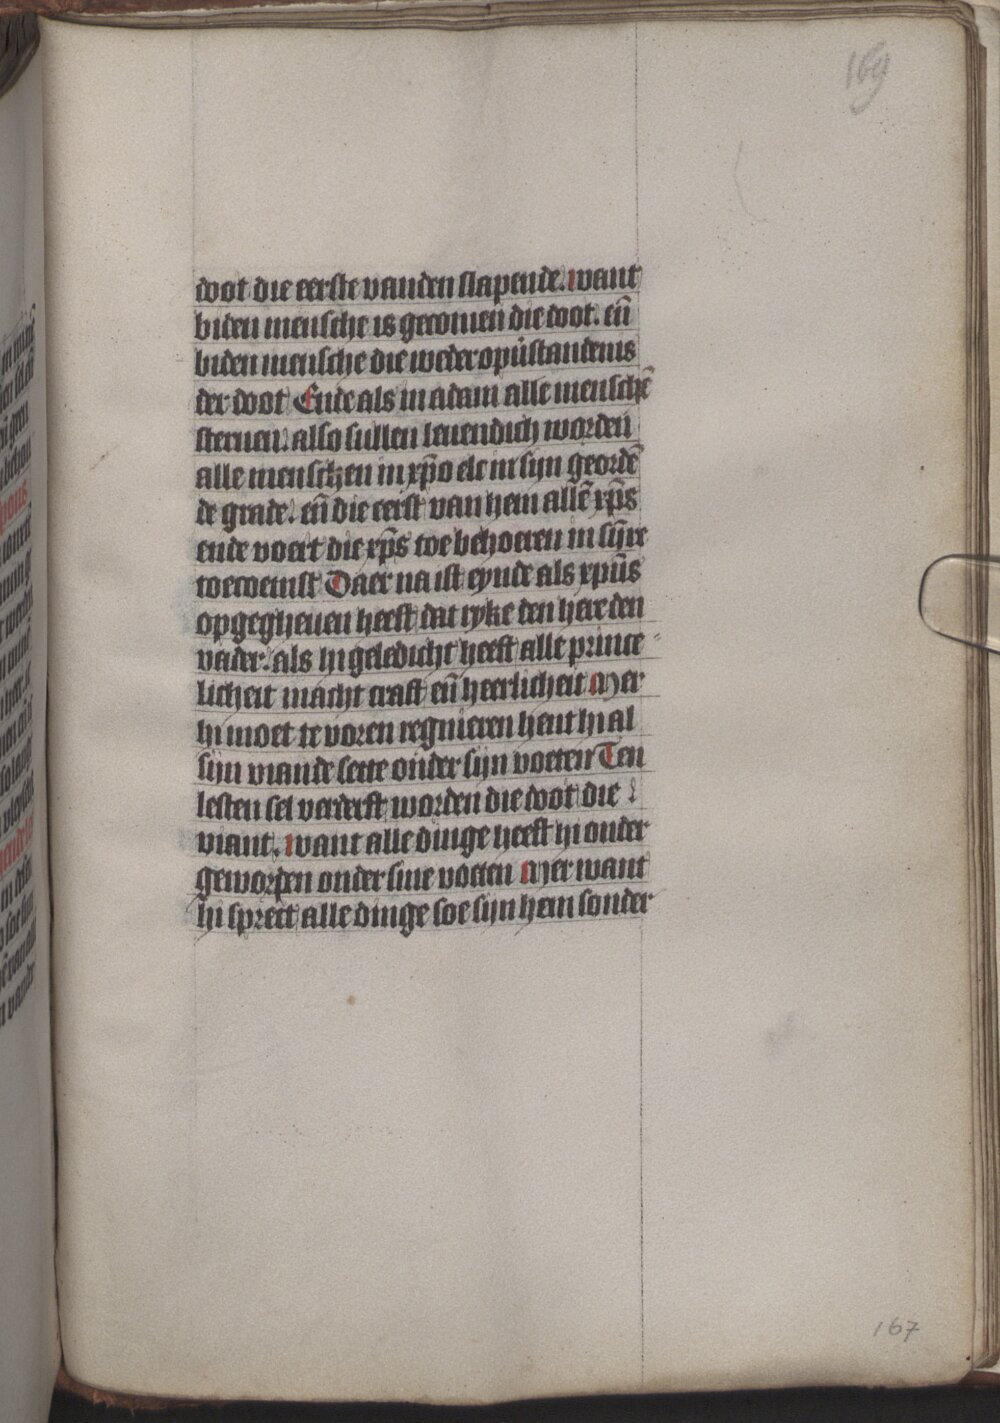 169
doot die eerste vanden slapende. want
biden mensche is gecomen die doot. eñ
biden mensche die wederopūstandenis
der doot Ende als in adam alle menschē
steruen. also sullen leuendich worden
alle menschen in xp̄o elc in sijn geordē
de grade. eñ die eerst van hem allē xp̄s
ende voert die xp̄s toe behoeren in sijnre
toecoemst Daer na ist eynde als xpūs
opgegheuen heeft dat rijke den here den
vader. als hi geledicht heeft alle prince
licheit macht craft eñ heerlicheit Mer
hi moet te voren regnieren hent hi al
sijn viande sette onder sijn voeten Ten
lesten sel verderft worden die doot die
viant. want alle dinge heeft hi onder
geworpen onder sine voeten Mer want
hi spreect alle dinge soe sijn hem sonder
167